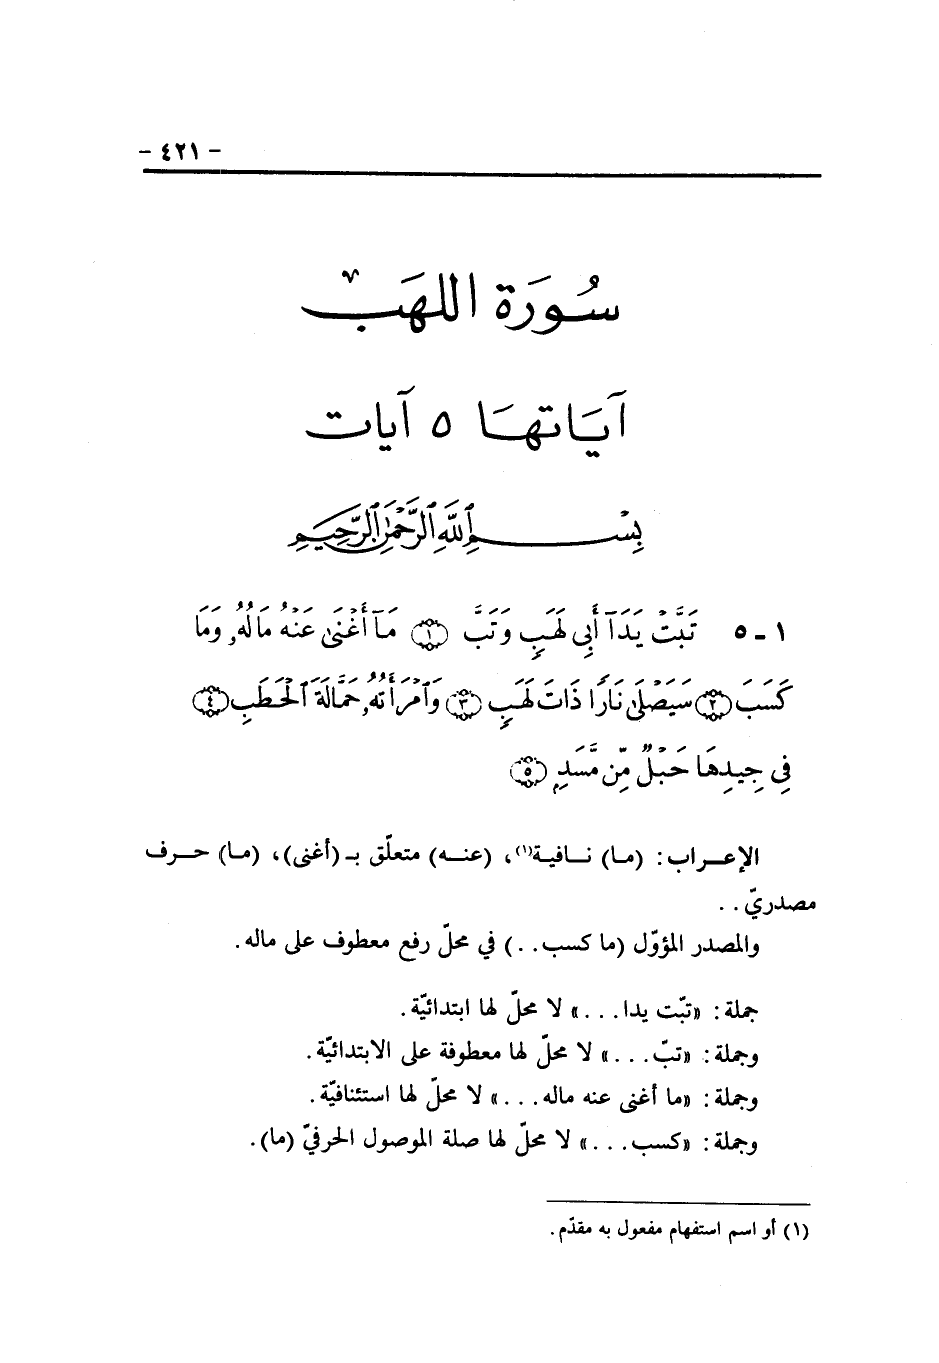 - ٤٢١ -
سُورَة اللهَب
آيَاتهَا ٥ آيات
بِسْمِ ٱللَّهِ ٱلرَّحْمَٰنِ ٱلرَّحِيمِ
١ - ٥ تَبَّتْ يَدَآ أَبِى لَهَبٍ وَتَبَّ ﴿١﴾ مَآ أَغْنَىٰ عَنْهُ مَالُهُۥ وَمَا
كَسَبَ ﴿٢﴾ سَيَصْلَىٰ نَارًا ذَاتَ لَهَبٍ ﴿٣﴾ وَٱمْرَأَتُهُۥ حَمَّالَةَ ٱلْحَطَبِ ﴿٤﴾
فِى جِيدِهَا حَبْلٌ مِّن مَّسَدٍۭ ﴿٥﴾
الإعـراب: (مـا) نـافيـة(١)، (عنـه) متعلّق بـ (أغنى)، (مـا) حـرف
مصدريّ . .
والمصدر المؤوّل (ما كسب. . ) في محلّ رفع معطوف على ماله.
جملة: «تبّت يدا. . . » لا محلّ لها ابتدائيّة.
وجملة: «تبّ. . . » لا محلّ لها معطوفة على الابتدائيّة.
وجملة: «ما أغنى عنه ماله. . . » لا محلّ لها استئنافيّة.
وجملة: «كسب. . . » لا محلّ لها صلة الموصول الحرفيّ (ما).
(١) أو اسم استفهام مفعول به مقدّم.